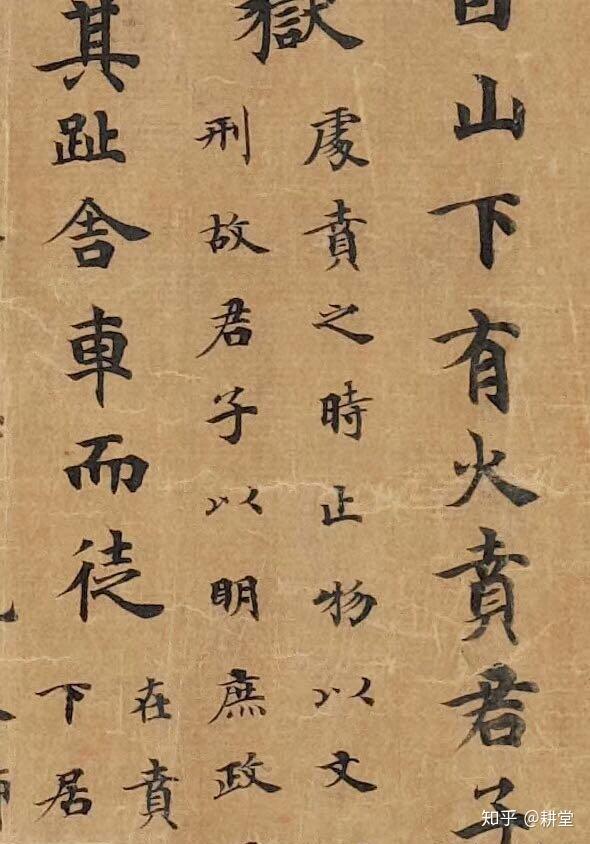 曰山下有火賁君子
獄
處賁之時止物以文
刑故君子以明庶政
其趾舍車而徒
在賁
下居
知乎 @耕堂